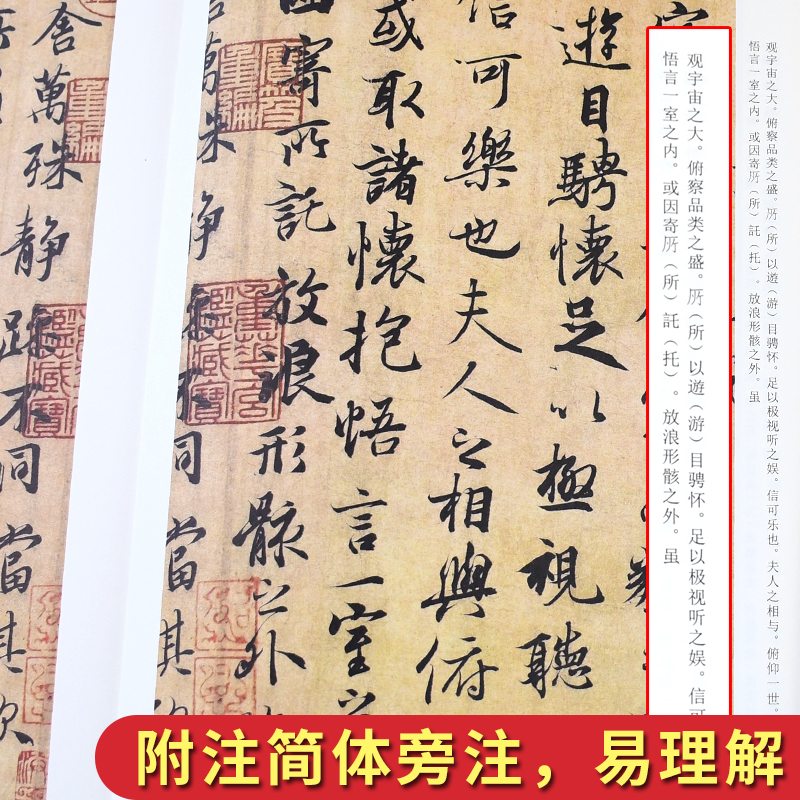 观宇宙之大。俯察品类之盛。㪽（所）以遊（游）目骋怀。足以极视听之娱。信可乐也。夫人之相与。俯仰一世。
悟言一室之内。或因寄㪽（所）託（托）。放浪形骸之外。虽
观宇宙之大。俯察品类之盛。㪽（所）以遊（游）目骋怀。足以极视听之娱。信可
悟言一室之内。或因寄㪽（所）託（托）。放浪形骸之外。虽
遊目騁懷足以極視聽
信可樂也夫人之相與俯
或取諸懷抱悟言一室之
因寄所託放浪形骸之外
萬殊靜躁不同當其欣
舍萬殊靜躁不同當其欣
附注简体旁注，易理解